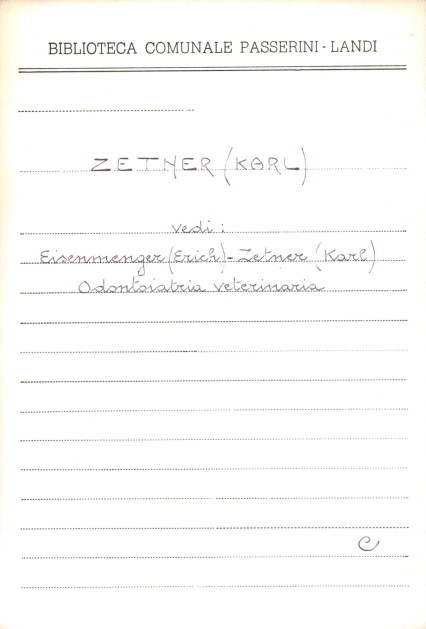 BIBLIOTECA COMUNALE PASSERINI - LANDI
ZETNER (KARL)
vedi :
Eisenmenger (Erich) - Zetner (Karl)
Odontoiatria veterinaria
C